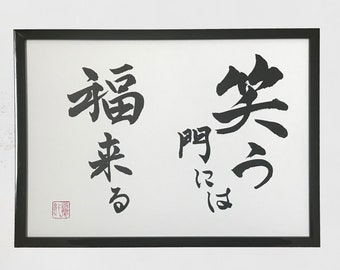 笑う
門には
福来る